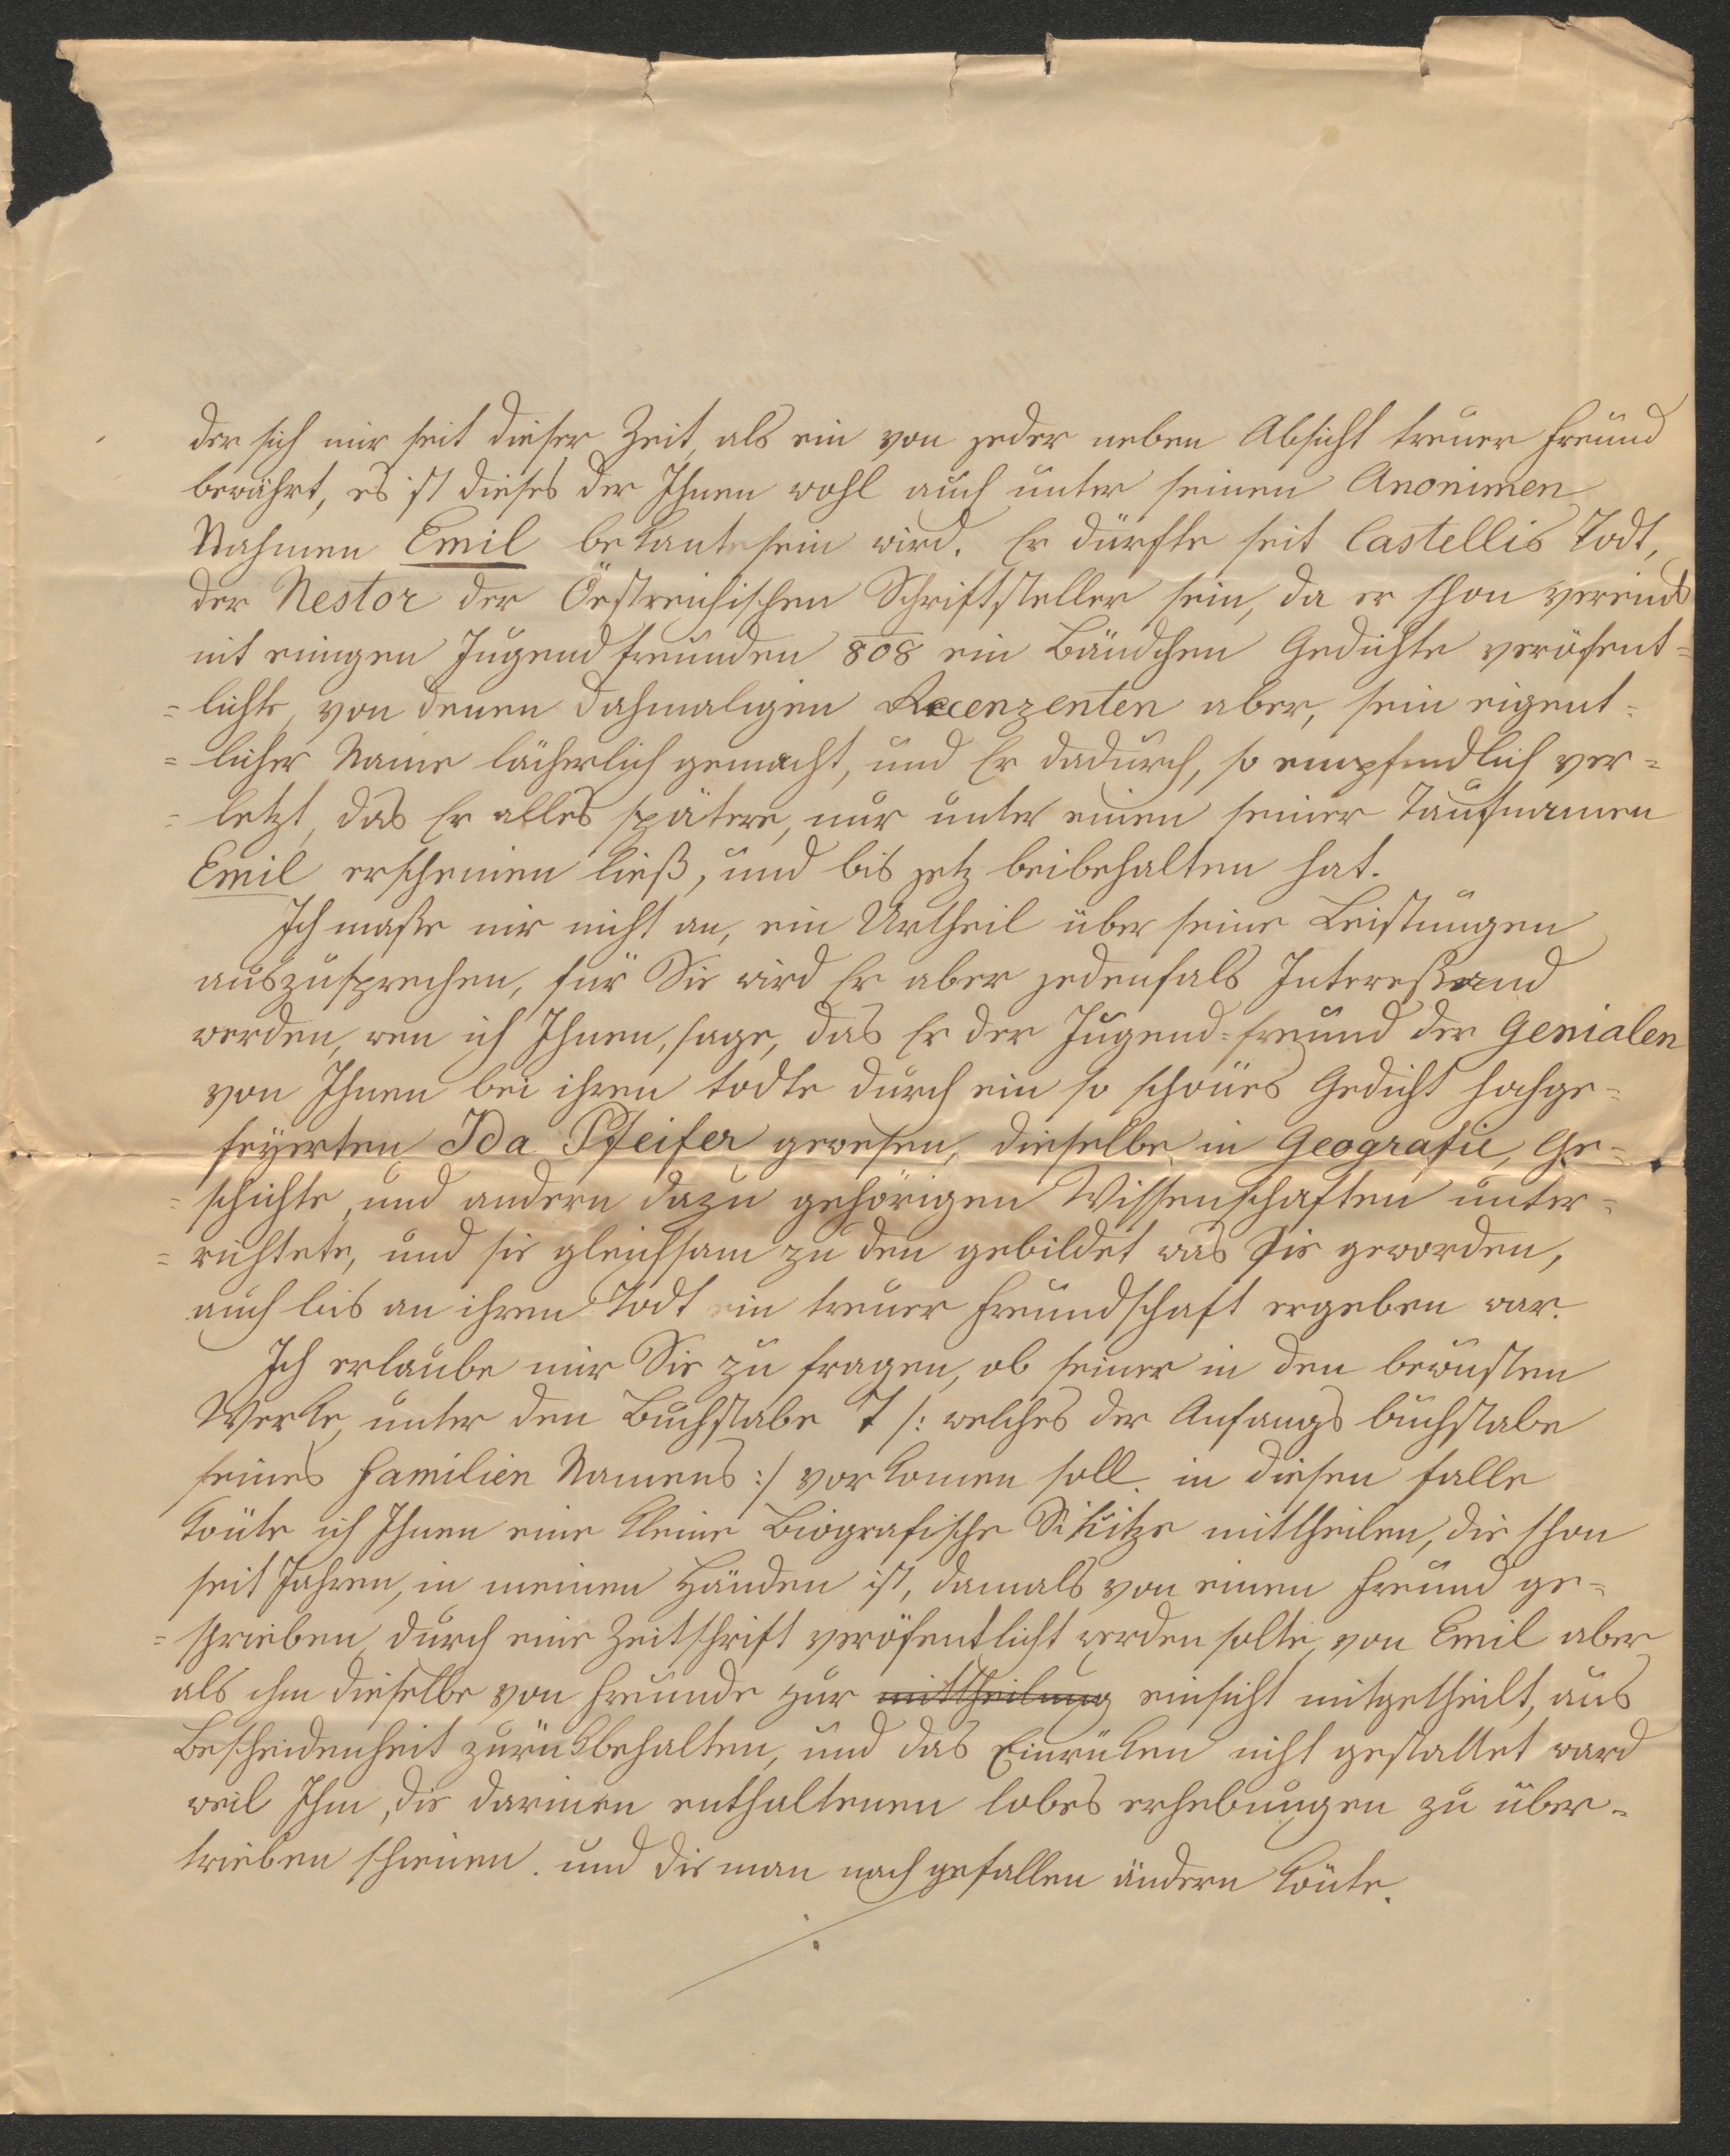 der sich mir seit dieser Zeit, als ein von jeder neben Absicht treuer Freund
bewährt, es ist dieses der Ihnen wohl auch unter seinen Anonimen
Nahmen Emil bekannt sein wird. Er dürfte seit Castellis Todt,
der Nestor der Öestreichischen Schriftsteller sein, da er schon vereind
mit einigen Jugendfreunden 808 ein Bändchen Gedichte veröfent=
=lichte, von denen dahmaligen Recenzenten aber, sein eigent=
=licher Name lächerlich gemacht, und Er dadurch, so empfindlich ver=
=letzt, das Er alles spätere, nur unter einen seiner Taufnamen
Emil erscheinen ließ, und bis jetz beibehalten hat.
Ich maße mir nicht an, ein Urtheil über seine Leistungen
auszusprechen, für Sie wird Er aber jedenfals Intereßand
werden, wen ich Ihnen, sage, das Er der Jugend=freund der Genialen
von Ihnen bei ihren todte durch ein so schönes Gedicht hochge=
feyerten Ida Pfeifer gewesen, dieselbe in Geografie, Ge=
=schichte, und andern dazu gehörigen Wissenschaften unter=
=richtete, und sie gleichsam zu den gebildet was Sie geworden,
auch bis an ihren Todt in treuer Freundschaft ergeben war.
Ich erlaube mir Sie zu fragen, ob seiner in den bewusten
Werke unter den Buchstabe T /: welches der Anfangs buchstabe
seines Familien Namens :/ vorkomen soll. in diesen falle
könte ich Ihnen eine kleine Biografische Skitze mittheilen, die schon
seit Jahren, in meinen Händen ist, damals von einen Freund ge=
=schrieben durch eine Zeitschrift veröfentlicht werden solte, von Emil aber
als ihm dieselbe von Freunde zur mittheilung einsicht mitgetheilt, aus
Bescheidenheit zurükbehalten, und das Einrüken nicht gestattet ward
weil Ihm, die darinen enthaltenen lobes erhebungen zu über=
trieben schienen. und die man nach gefallen ändern könte.